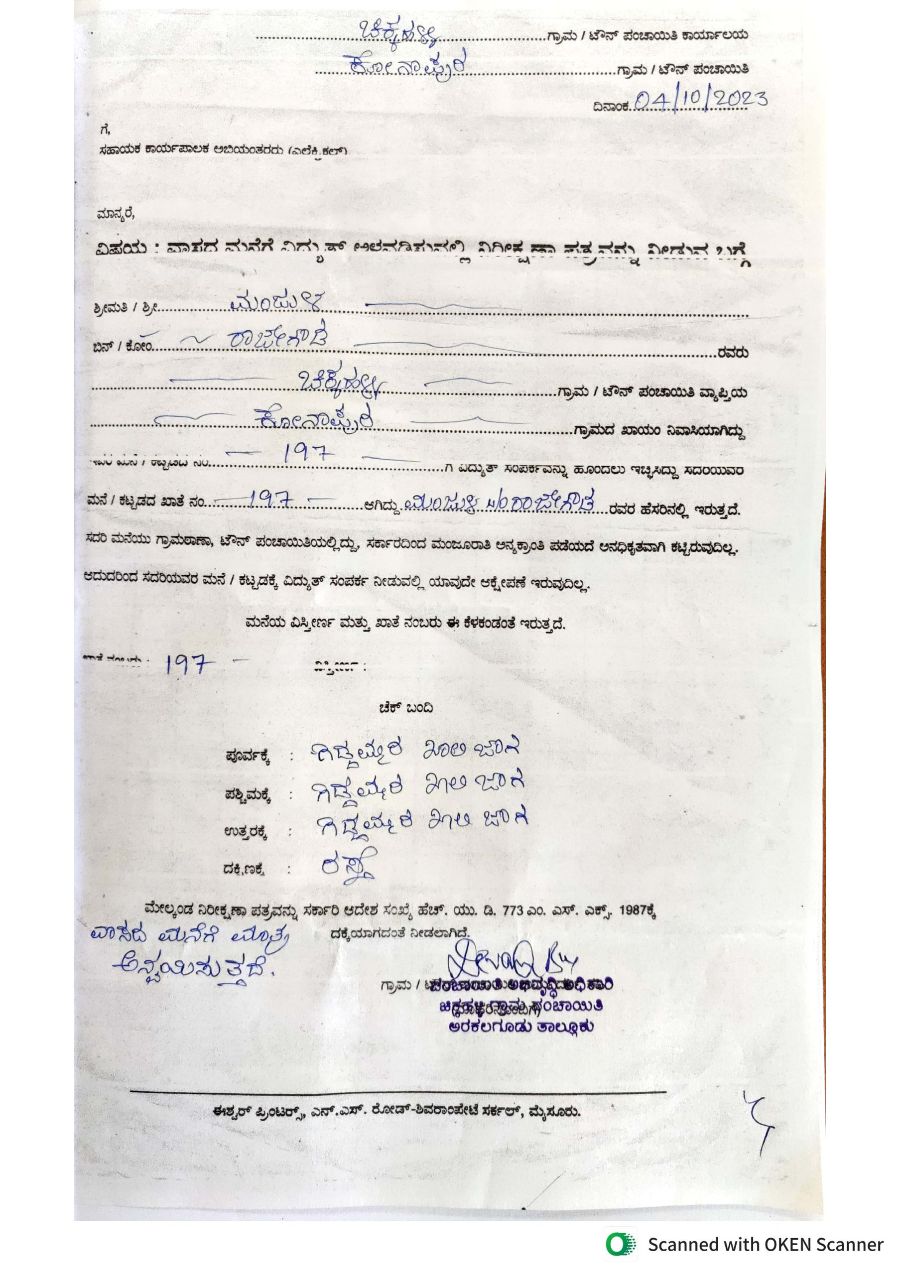 ಚಿಕ್ಕಹಳ್ಳಿ ಗ್ರಾಮ / ಟೌನ್ ಪಂಚಾಯಿತಿ ಕಾರ್ಯಾಲಯ
ಕೋನಾಪುರ ಗ್ರಾಮ / ಟೌನ್ ಪಂಚಾಯಿತಿ
ದಿನಾಂಕ 04/10/2023
ಗೆ,
ಸಹಾಯಕ ಕಾರ್ಯಪಾಲಕ ಅಭಿಯಂತರರು (ಎಲೆಕ್ಟ್ರಿಕಲ್)
ಮಾನ್ಯರೆ,
ವಿಷಯ : ವಾಸದ ಮನೆಗೆ ವಿದ್ಯುತ್ ಅಳವಡಿಸುವಲ್ಲಿ ನಿರೀಕ್ಷಣಾ ಪತ್ರವನ್ನು ನೀಡುವ ಬಗ್ಗೆ
ಶ್ರೀಮತಿ / ಶ್ರೀ. ಮಂಜುಳ
ಬಿನ್ / ಕೋಂ. ರಾಜೇಗೌಡ ರವರು
ಚಿಕ್ಕಹಳ್ಳಿ ಗ್ರಾಮ / ಟೌನ್ ಪಂಚಾಯಿತಿ ವ್ಯಾಪ್ತಿಯ
ಕೋನಾಪುರ ಗ್ರಾಮದ ಖಾಯಂ ನಿವಾಸಿಯಾಗಿದ್ದು
ಮನೆ / ಕಟ್ಟಡದ ನಂ. 197 ಗೆ ವಿದ್ಯುತ್ ಸಂಪರ್ಕವನ್ನು ಹೊಂದಲು ಇಚ್ಛಿಸಿದ್ದು ಸದರಿಯವರ
ಮನೆ / ಕಟ್ಟಡದ ಖಾತೆ ನಂ. 197 ಆಗಿದ್ದು ಮಂಜುಳ ರಾಜೇಗೌಡ ರವರ ಹೆಸರಿನಲ್ಲಿ ಇರುತ್ತದೆ.
ಸದರಿ ಮನೆಯು ಗ್ರಾಮಠಾಣಾ, ಟೌನ್ ಪಂಚಾಯಿತಿಯಲ್ಲಿದ್ದು, ಸರ್ಕಾರದಿಂದ ಮಂಜೂರಾತಿ ಅನ್ಯಕ್ರಾಂತಿ ಪಡೆಯದೆ ಅನಧಿಕೃತವಾಗಿ ಕಟ್ಟಿರುವುದಿಲ್ಲ.
ಆದುದರಿಂದ ಸದರಿಯವರ ಮನೆ / ಕಟ್ಟಡಕ್ಕೆ ವಿದ್ಯುತ್ ಸಂಪರ್ಕ ನೀಡುವಲ್ಲಿ ಯಾವುದೇ ಆಕ್ಷೇಪಣೆ ಇರುವುದಿಲ್ಲ.
ಮನೆಯ ವಿಸ್ತೀರ್ಣ ಮತ್ತು ಖಾತೆ ನಂಬರು ಈ ಕೆಳಕಂಡಂತೆ ಇರುತ್ತದೆ.
ಖಾತೆ ನಂಬರು : 197 ವಿಸ್ತೀರ್ಣ :
ಚೆಕ್ ಬಂದಿ
ಪೂರ್ವಕ್ಕೆ : ಗಿಡ್ಡಮ್ಮರ ಖಾಲಿ ಜಾಗ
ಪಶ್ಚಿಮಕ್ಕೆ : ಗಿಡ್ಡಮ್ಮರ ಖಾಲಿ ಜಾಗ
ಉತ್ತರಕ್ಕೆ : ಗಿಡ್ಡಮ್ಮರ ಖಾಲಿ ಜಾಗ
ದಕ್ಷಿಣಕ್ಕೆ : ರಸ್ತೆ
ಮೇಲ್ಕಂಡ ನಿರೀಕ್ಷಣಾ ಪತ್ರವನ್ನು ಸರ್ಕಾರಿ ಆದೇಶ ಸಂಖ್ಯೆ ಹೆಚ್. ಯು. ಡಿ. 773 ಎಂ. ಎಸ್. ಎಕ್ಸ್. 1987ಕ್ಕೆ
ದಕ್ಕೆಯಾಗದಂತೆ ನೀಡಲಾಗಿದೆ.
ವಾಸದ ಮನೆಗೆ ಮಾತ್ರ
ಅನ್ವಯಿಸುತ್ತದೆ.
ಗ್ರಾಮ /
ಪಂಚಾಯಿತಿ ಅಭಿವೃದ್ಧಿ ಅಧಿಕಾರಿ
ಚಿಕ್ಕಹಳ್ಳಿ ಗ್ರಾಮ ಪಂಚಾಯಿತಿ
ಅರಕಲಗೂಡು ತಾಲ್ಲೂಕು
ಈಶ್ವರ್ ಪ್ರಿಂಟರ್ಸ್, ಎನ್.ಎಸ್. ರೋಡ್-ಶಿವರಾಂಪೇಟೆ ಸರ್ಕಲ್, ಮೈಸೂರು.
Scanned with OKEN Scanner